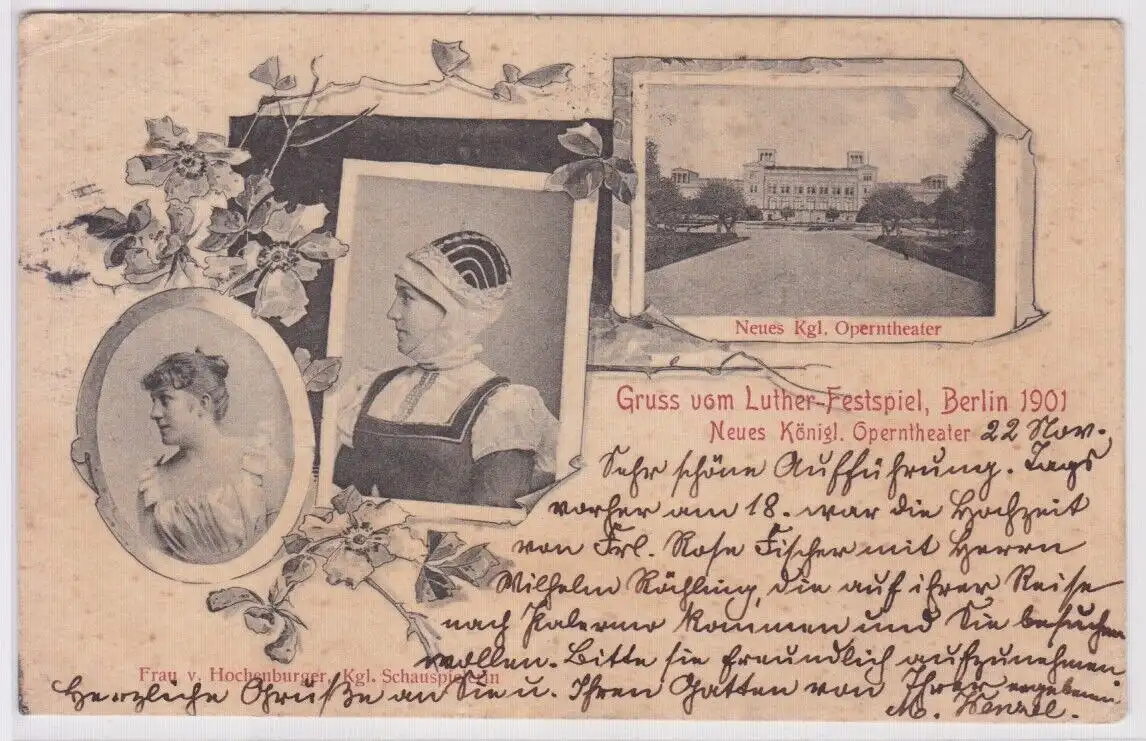 Neues Kgl. Operntheater
Gruss vom Luther-Festspiel, Berlin 1901
Neues Königl. Operntheater 22 Nov.
Sehr schöne Aufführung. Tags
vorher am 18. war die Hochzeit
von Frl. Rose Fischer mit Herrn
Wilhelm Röchling, die auf ihrer Reise
nach Palermo kommen und Sie besuchen
wollen. Bitte sie freundlich aufzunehmen
Frau v. Hochenburger, Kgl. Schauspielerin
Herzliche Grüße an Sie u. Ihren Gatten von Ihrer ergebenen
M.